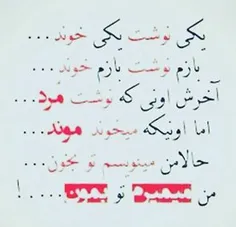 یکی نوشت یکی خوند...
بازم نوشت بازم خوند...
آخرش اونی که نوشت مرد...
اما اونیکه میخوند موند...
حالامن مینویسم تو بخون...
من میمیرم تو بمون.....!